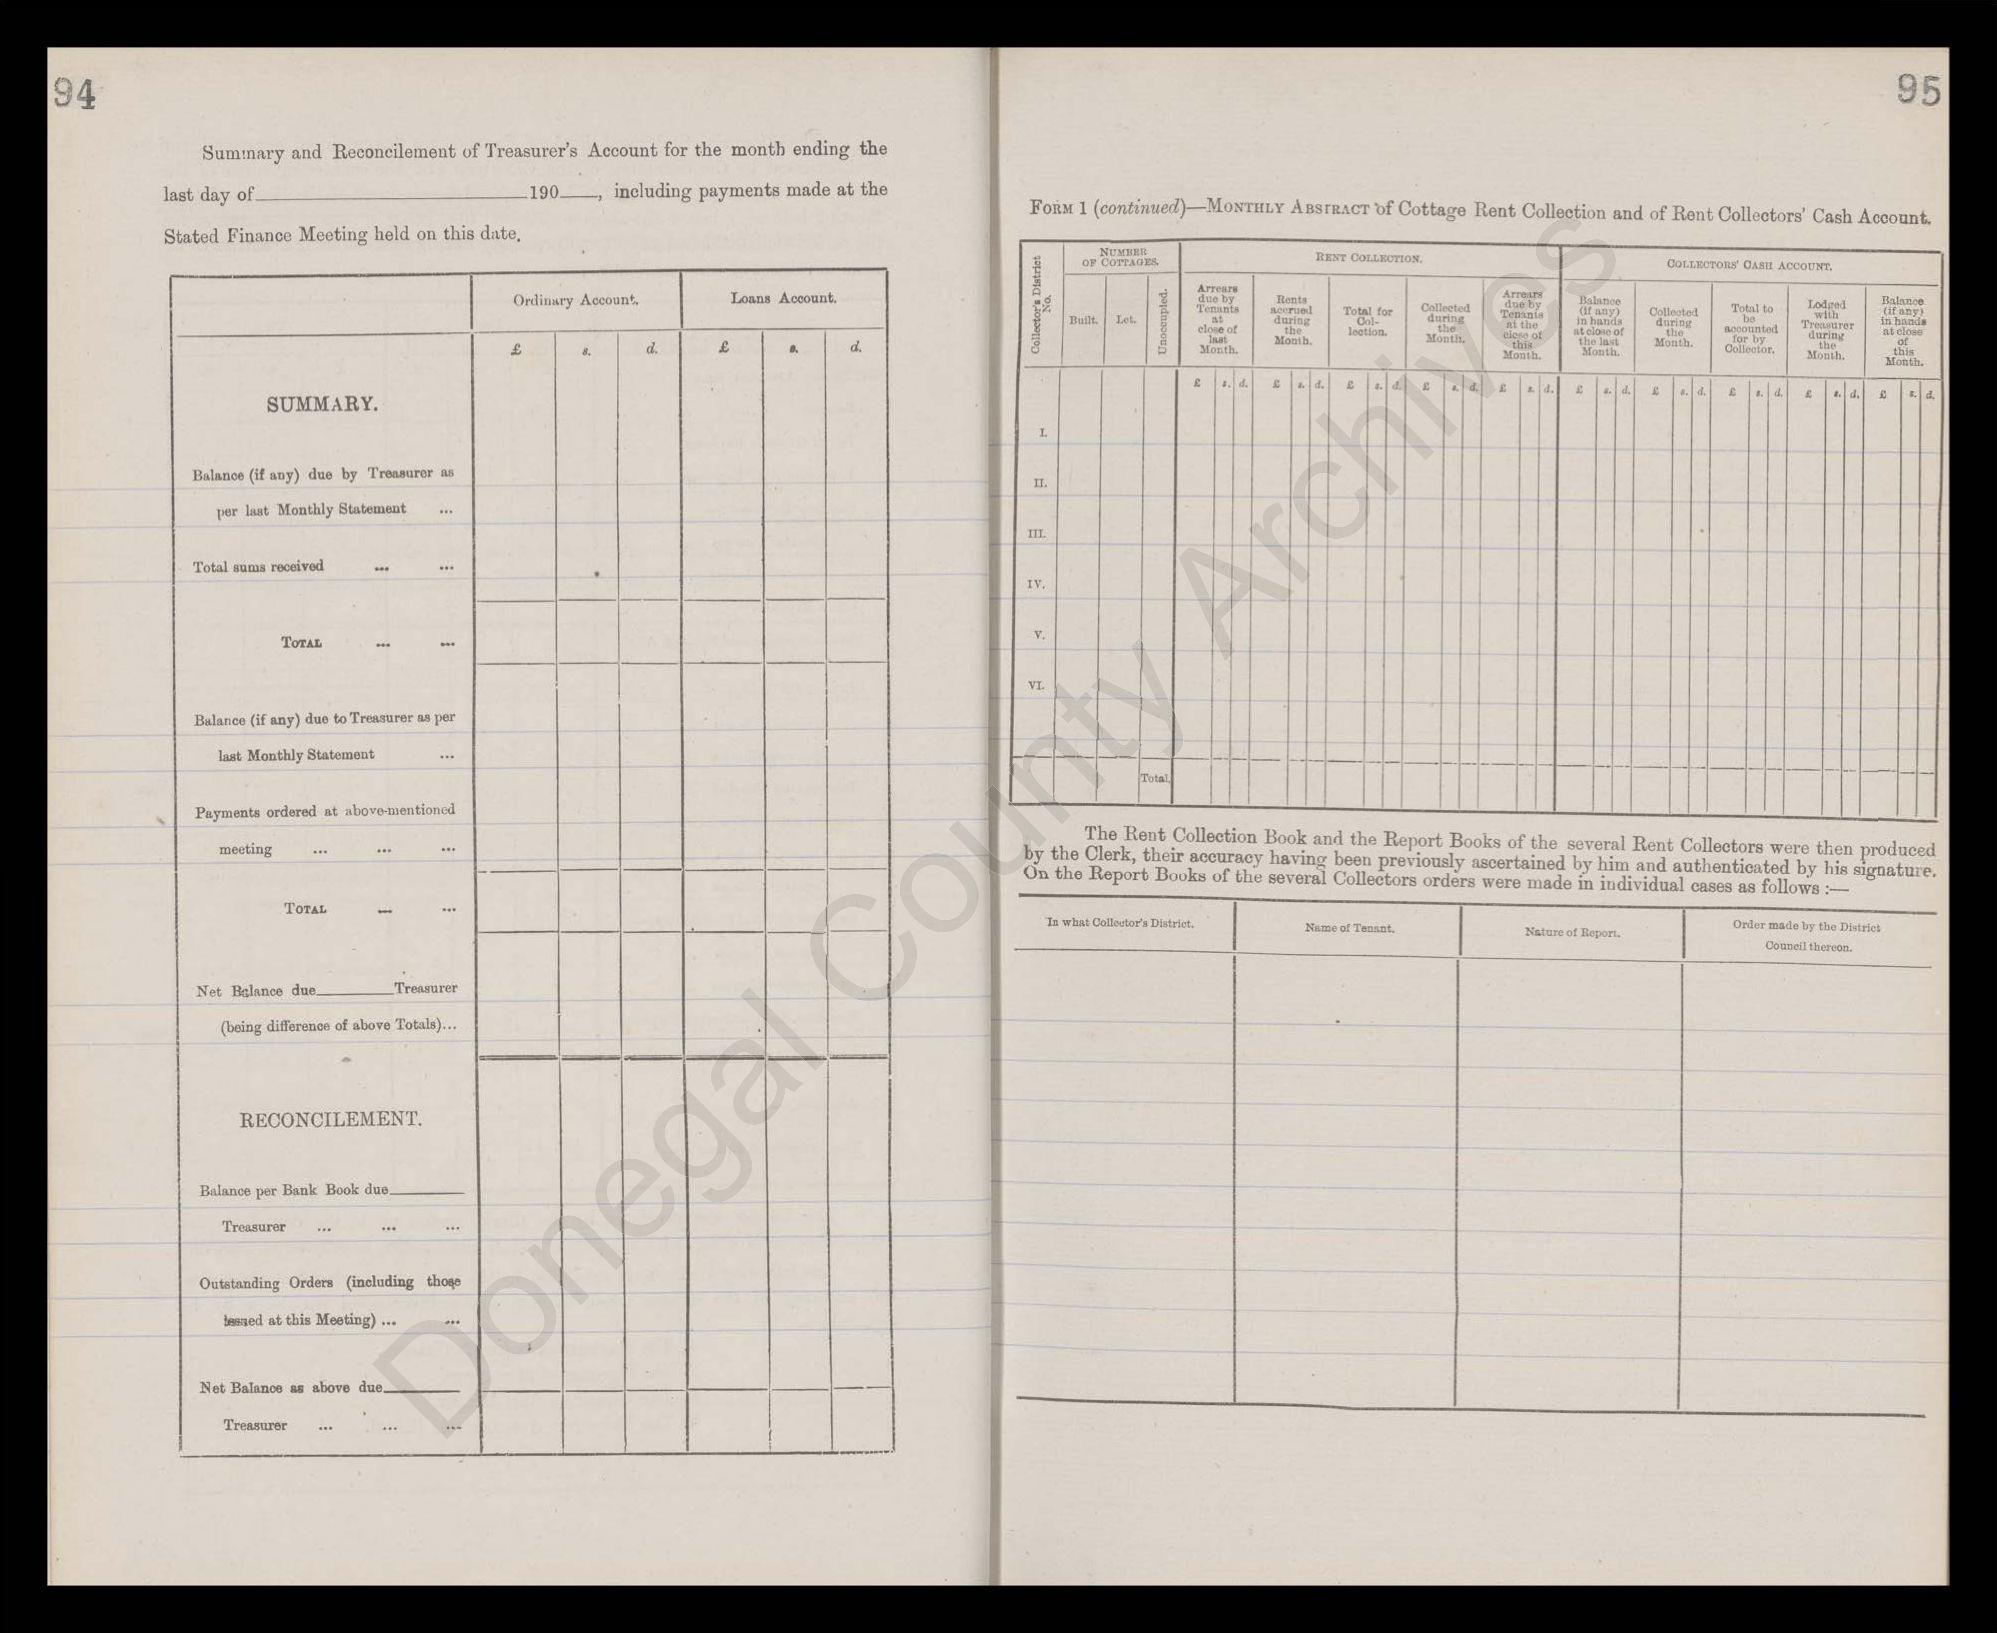 94
Summary and Reconcilement of Treasurer's Account for the month ending the
last day of 190 , including payments made at the
Stated Finance Meeting held on this date.
Ordinary Account. Loans Account.
£ s. d. £ s. d.
SUMMARY.
Balance (if any) due by Treasurer as
per last Monthly Statement ...
Total sums received ... ...
TOTAL ... ...
Balance (if any) due to Treasurer as per
last Monthly Statement ...
Payments ordered at above-mentioned
meeting ... ... ...
TOTAL ... ...
Net Balance due Treasurer
(being difference of above Totals)...
RECONCILEMENT.
Balance per Bank Book due
Treasurer ... ... ...
Outstanding Orders (including those
issued at this Meeting) ... ...
Net Balance as above due
Treasurer ... ... ...
95
FORM 1 (continued)—MONTHLY ABSTRACT of Cottage Rent Collection and of Rent Collectors' Cash Account.
Collector's District
No.
NUMBER
OF COTTAGES.
Built. Let. Unoccupied.
RENT COLLECTION.
Arrears
due by
Tenants
at
close of
last
Month.
Rents
accrued
during
the
Month.
Total for
Col-
lection.
Collected
during
the
Month.
Arrears
due by
Tenants
at the
close of
this
Month.
COLLECTORS' CASH ACCOUNT.
Balance
(if any)
in hands
at close of
the last
Month.
Collected
during
the
Month.
Total to
be
accounted
for by
Collector.
Lodged
with
Treasurer
during
the
Month.
Balance
(if any)
in hands
at close
of
this
Month.
£ s. d. £ s. d. £ s. d. £ s. d. £ s. d. £ s. d. £ s. d. £ s. d. £ s. d. £ s. d.
I.
II.
III.
IV.
V.
VI.
Total.
The Rent Collection Book and the Report Books of the several Rent Collectors were then produced
by the Clerk, their accuracy having been previously ascertained by him and authenticated by his signature.
On the Report Books of the several Collectors orders were made in individual cases as follows :—
In what Collector's District. Name of Tenant. Nature of Report. Order made by the District
Council thereon.
Donegal County Archives